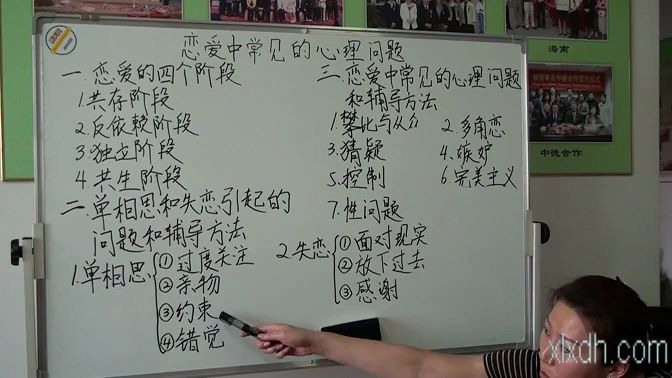 恋爱中常见的心理问题
一.恋爱的四个阶段
1.共存阶段
2.反依赖阶段
3.独立阶段
4.共生阶段
二.单相思和失恋引起的
问题和辅导方法
1.单相思
①过度关注
②亲物
③约束
④错觉
2.失恋
①面对现实
②放下过去
③感谢
三.恋爱中常见的心理问题
和辅导方法
1.攀比与从众
2.多角恋
3.猜疑
4.嫉妒
5.控制
6.完美主义
7.性问题
海南
中德合作
xlxdh.com